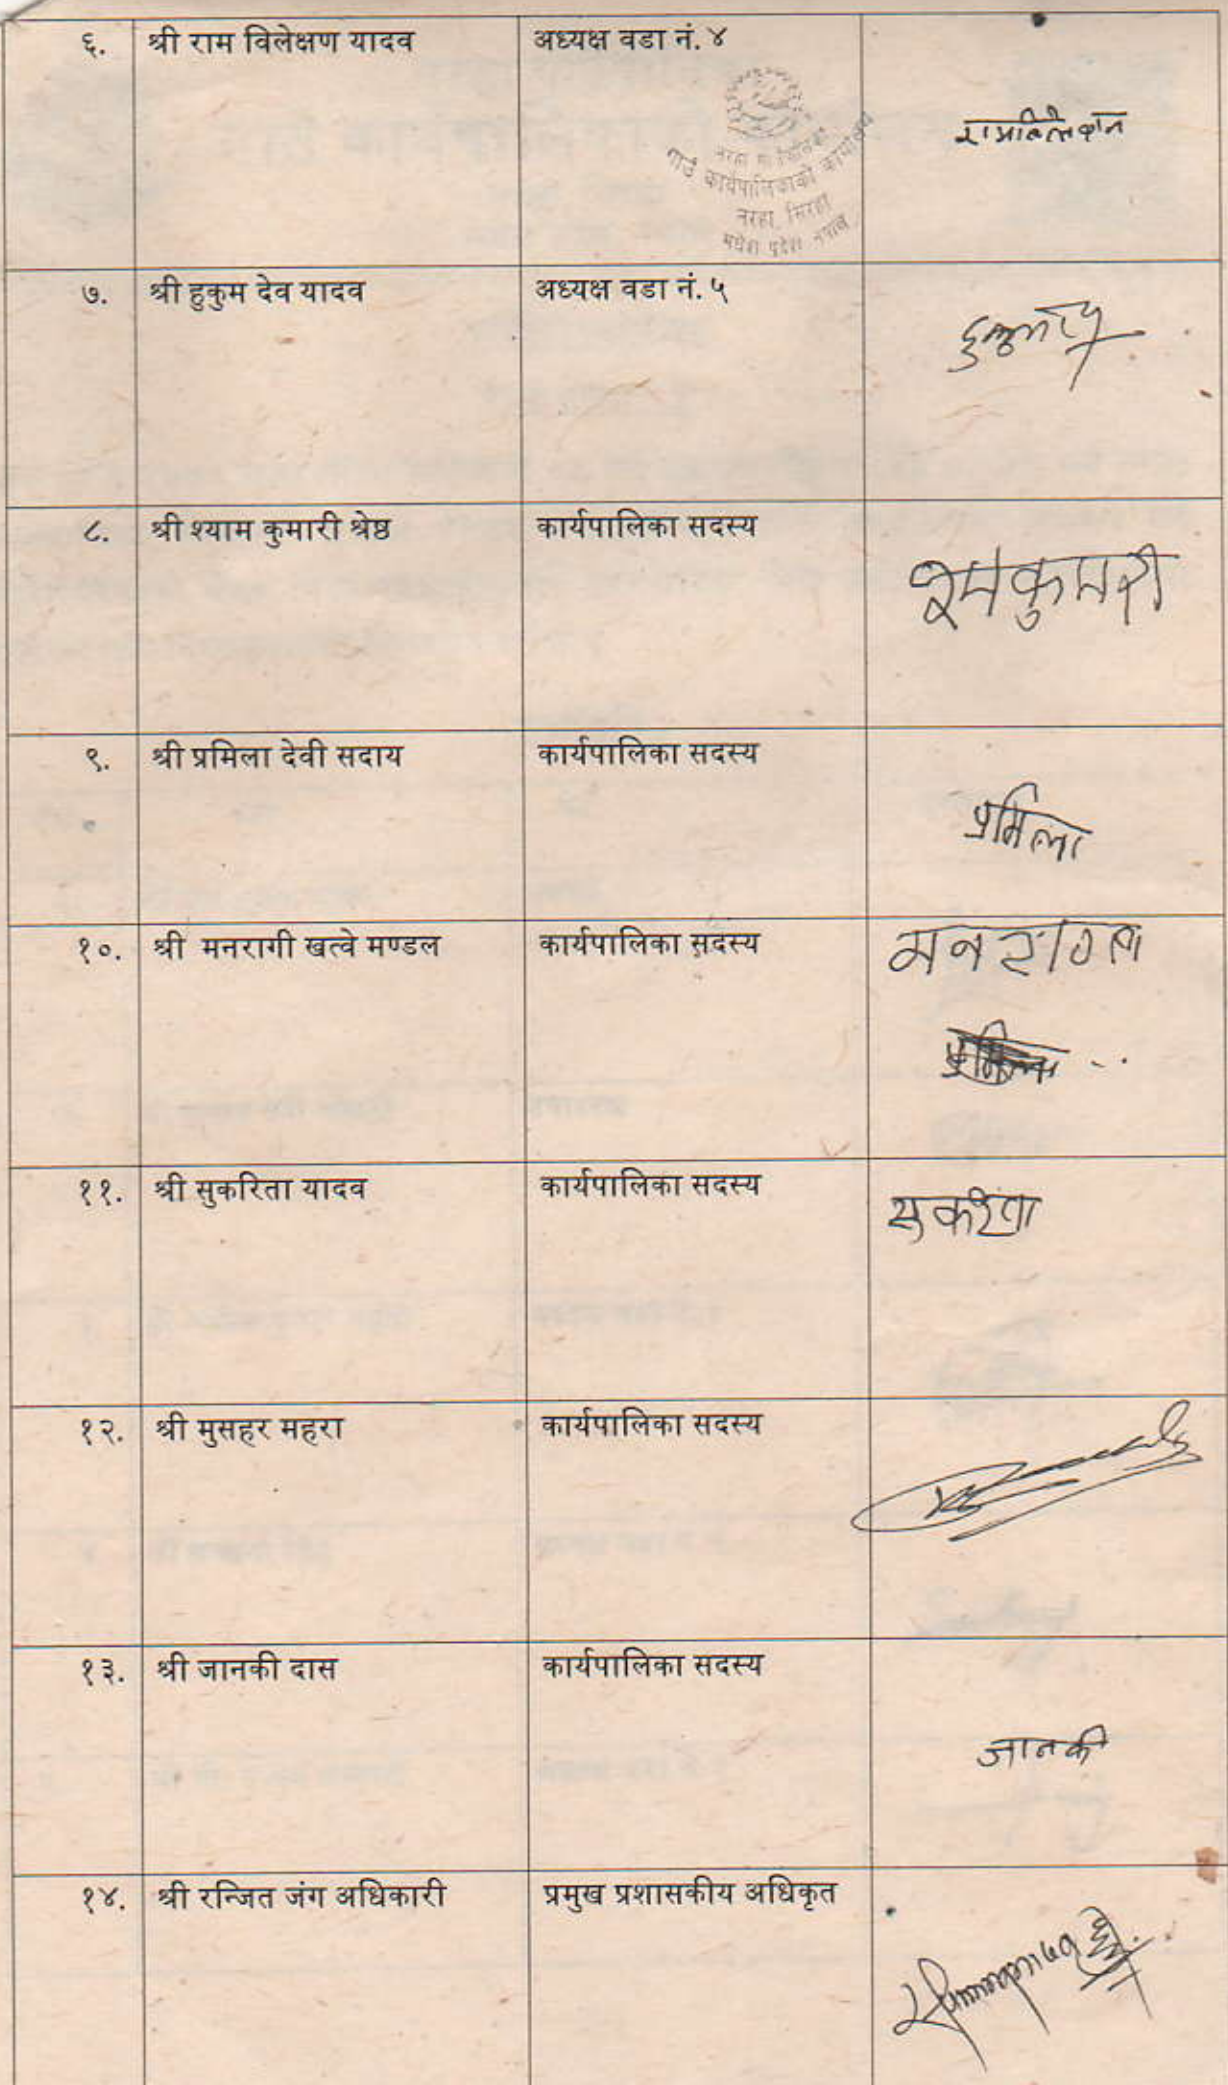 ६. श्री राम विलेक्षण यादव अध्यक्ष वडा नं. ४
रामविलेक्षन
गाउँ कार्यपालिकाको कार्यालय
नरहा, सिरहा
मधेश प्रदेश, नेपाल
७. श्री हुकुम देव यादव अध्यक्ष वडा नं. ५
८. श्री श्याम कुमारी श्रेष्ठ कार्यपालिका सदस्य
९. श्री प्रमिला देवी सदाय कार्यपालिका सदस्य
प्रमिला
१०. श्री मनरागी खत्वे मण्डल कार्यपालिका सदस्य
११. श्री सुकरिता यादव कार्यपालिका सदस्य
१२. श्री मुसहर महरा कार्यपालिका सदस्य
१३. श्री जानकी दास कार्यपालिका सदस्य
जानकी
१४. श्री रन्जित जंग अधिकारी प्रमुख प्रशासकीय अधिकृत